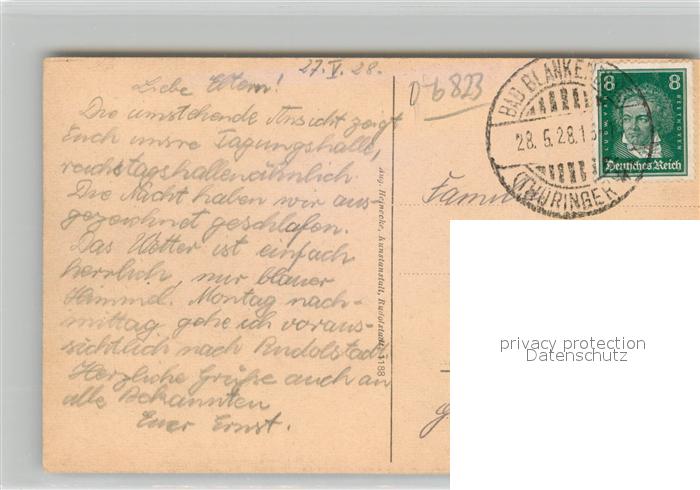 27.V.28.
Liebe Eltern!
Die umstehende Ansicht zeigt
Euch unsre Tagungshalle,
reichstagshallenähnlich.
Die Nacht haben wir aus-
gezeichnet geschlafen.
Das Wetter ist einfach
herrlich, nur blauer
Himmel. Montag nach-
mittag gehe ich voraus-
sichtlich nach Rudolstadt.
Herzliche Grüße auch an
alle Bekannten
Euer Ernst.
D-b823
Aug. Heinecke, Kunstanstalt, Rudolstadt
BAD BLANKEN
28.5.28.1
(THÜRINGER
8 8
LUDW. VAN BEETHOVEN
Deutsches Reich
Famil
privacy protection
Datenschutz